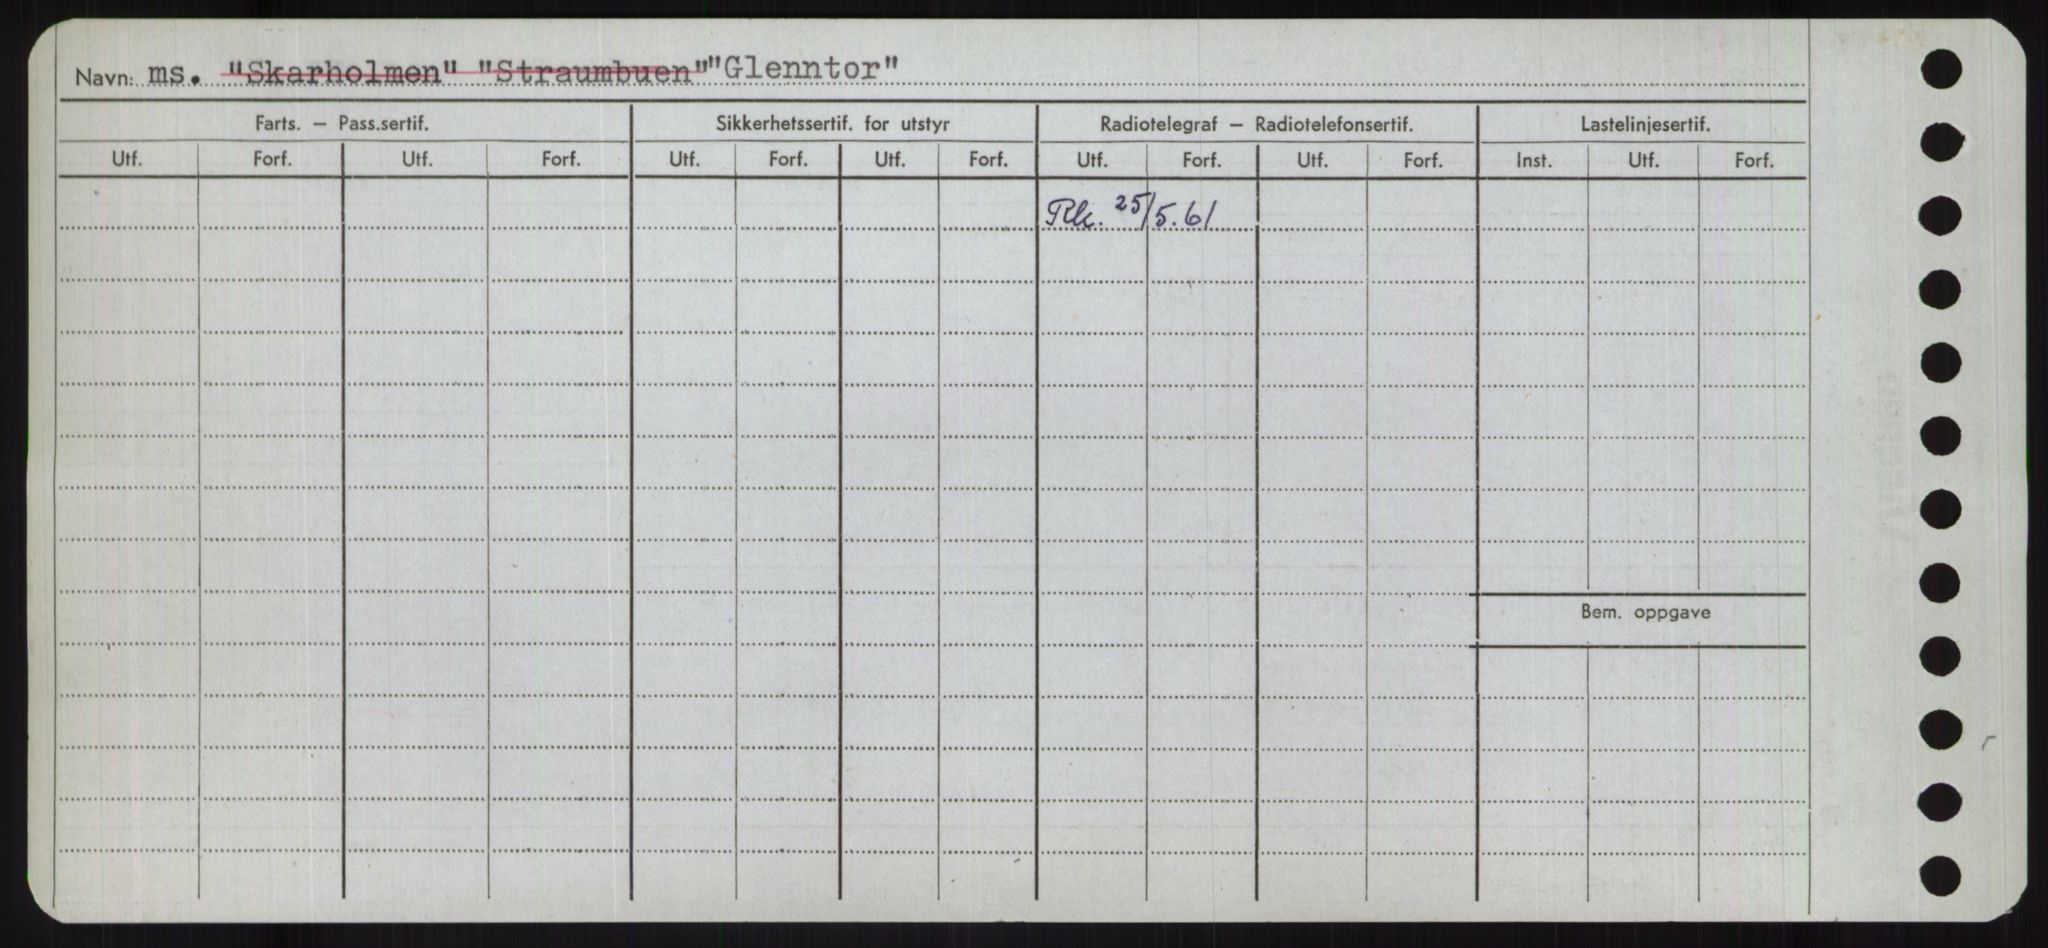 Navn: ms. "Skarholmen" "Straumbuen" "Glenntor"
Farts. – Pass.sertif. Sikkerhetssertif. for utstyr Radiotelegraf – Radiotelefonsertif. Lastelinjesertif.
Utf. Forf. Utf. Forf. Utf. Forf. Utf. Forf. Utf. Forf. Utf. Forf. Inst. Utf. Forf.
Rk. 25/5.61
Bem. oppgave